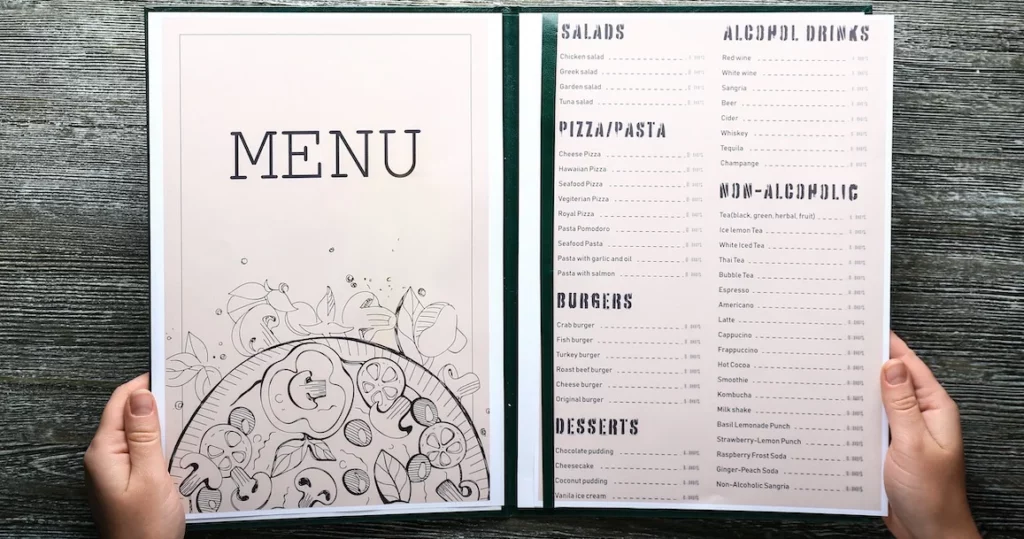 MENU
SALADS
Chicken salad
Greek salad
Garden salad
Tuna salad
PIZZA/PASTA
Cheese Pizza
Hawaiian Pizza
Seafood Pizza
Vegiterian Pizza
Royal Pizza
Pasta Pomodoro
Seafood Pasta
Pasta with garlic and oil
Pasta with salmon
BURGERS
Crab burger
Fish burger
Turkey burger
Roast beef burger
Cheese burger
Original burger
DESSERTS
Chocolate pudding
Cheesecake
Coconut pudding
Vanila ice cream
ALCOHOL DRINKS
Red wine
White wine
Sangria
Beer
Cider
Whiskey
Tequila
Champange
NON-ALCOHOLIC
Tea(black, green, herbal, fruit)
Ice lemon Tea
White Iced Tea
Thai Tea
Bubble Tea
Espresso
Americano
Latte
Cappucino
Frappuccino
Hot Cocoa
Smoothie
Kombucha
Milk shake
Basil Lemonade Punch
Strawberry-Lemon Punch
Raspberry Frost Soda
Ginger-Peach Soda
Non-Alcoholic Sangria